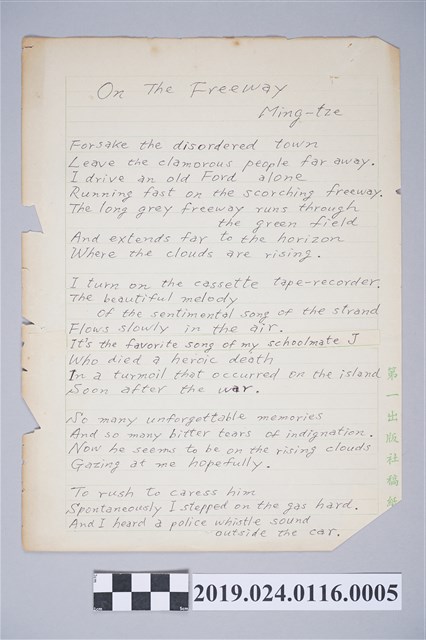 On The Freeway
Ming-tze
Forsake the disordered town
Leave the clamorous people far away.
I drive an old Ford alone
Running fast on the scorching freeway.
The long grey freeway runs through
the green field
And extends far to the horizon
Where the clouds are rising.
I turn on the cassette tape-recorder.
The beautiful melody
of the sentimental song of the strand
Flows slowly in the air.
It's the favorite song of my schoolmate J
Who died a heroic death
In a turmoil that occurred on the island
Soon after the war.
So many unforgottable memories
And so many bitter tears of indignation.
Now he seems to be on the rising clouds
Gazing at me hopefully.
To rush to caress him
Spontaneously I stepped on the gas hard.
And I heard a police whistle sound
outside the car.
第一出版社稿紙
2019.024.0116.0005